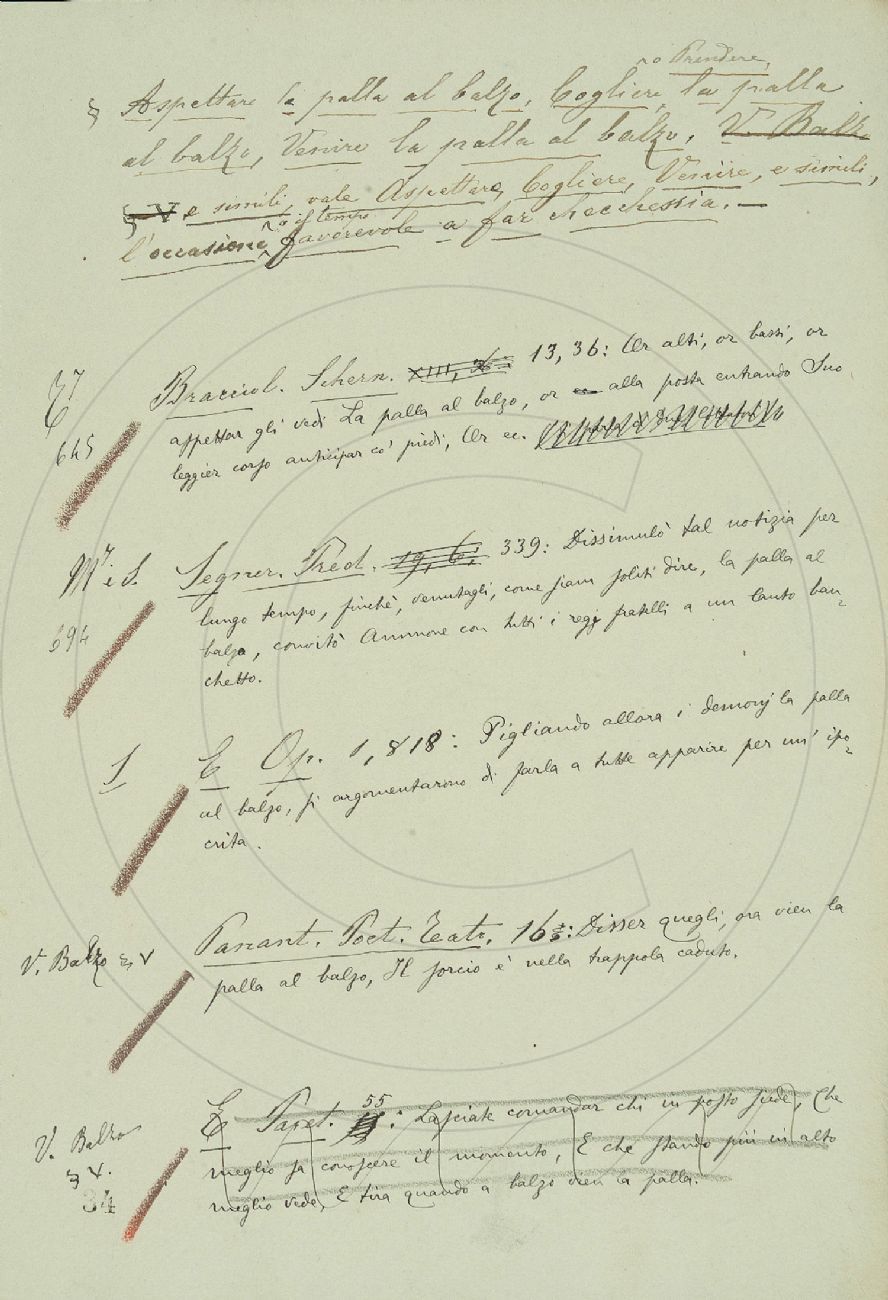 o Prendere,
§ Aspettare la palla al balzo, Cogliere la palla
al balzo, Venire la palla al balzo, V. Balzo
§ V e simili, vale Aspettare, Cogliere, Venire, e simili,
o il tempo
l'occasione favorevole a far checchessia. —
Bracciol. Schern. XIII, 36: 13, 36: Or alti, or bassi, or
645 appettar gli vedi La palla al balzo, or alla posta entrando Suo
leggier corso anticipar co' piedi, Or ec.
Segner. Pred. 19, 6: 339: Dissimulò tal notizia per
694 lungo tempo, finchè, venutagli, come siam soliti dire, la palla al
balzo, convitò Ammone con tutti i regj fratelli a un lauto ban-
chetto.
S E Op. 1, 818: Pigliando allora i demonj la palla
al balzo, si argomentarono di farla a tutte apparire per un' ipo-
crita.
V. Balzo § V Pananti. Poet. Teatr. 16: Disser quegli, ora vien la
palla al balzo, Il sorcio è nella trappola caduto.
55
E Paret. : Lasciate comandar chi in posto siede, Che
V. Balzo meglio sa conoscere il momento, E che stando più in alto
§ V.
34 meglio vede, E tira quando a balzo vien la palla.